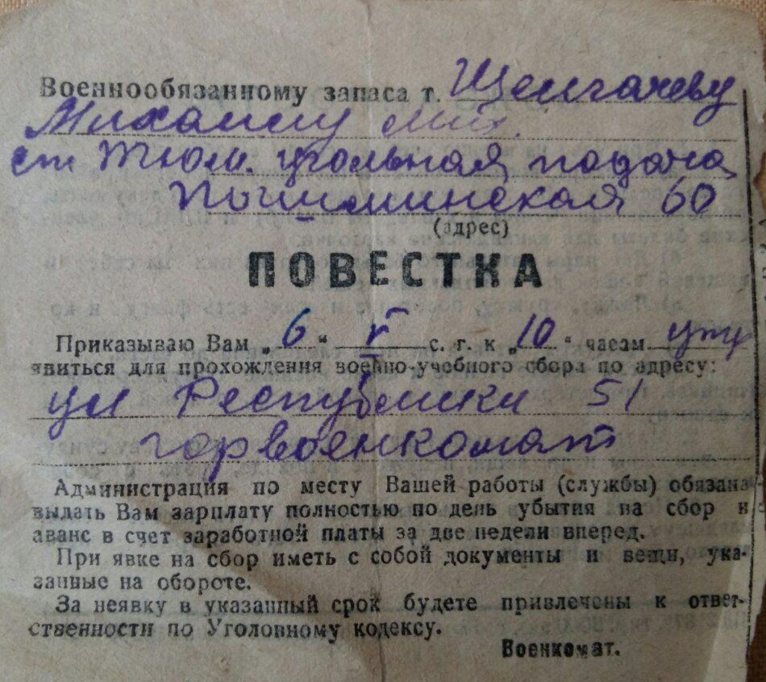 Военнообязанному запаса т. Щелгачеву
Михаилу Мих.
ст Тюм. угольная подача
Пышминская 60
(адрес)
ПОВЕСТКА
Приказываю Вам „6“ V с. г. к „10“ часам утр
явиться для прохождения военно-учебного сбора по адресу:
ул Республики 51
горвоенкомат
Администрация по месту Вашей работы (службы) обязана
выдать Вам зарплату полностью по день убытия на сбор и
аванс в счет заработной платы за две недели вперед.
При явке на сбор иметь с собой документы и вещи, ука-
занные на обороте.
За неявку в указанный срок будете привлечены к ответ-
ственности по Уголовному кодексу.
Военкомат.